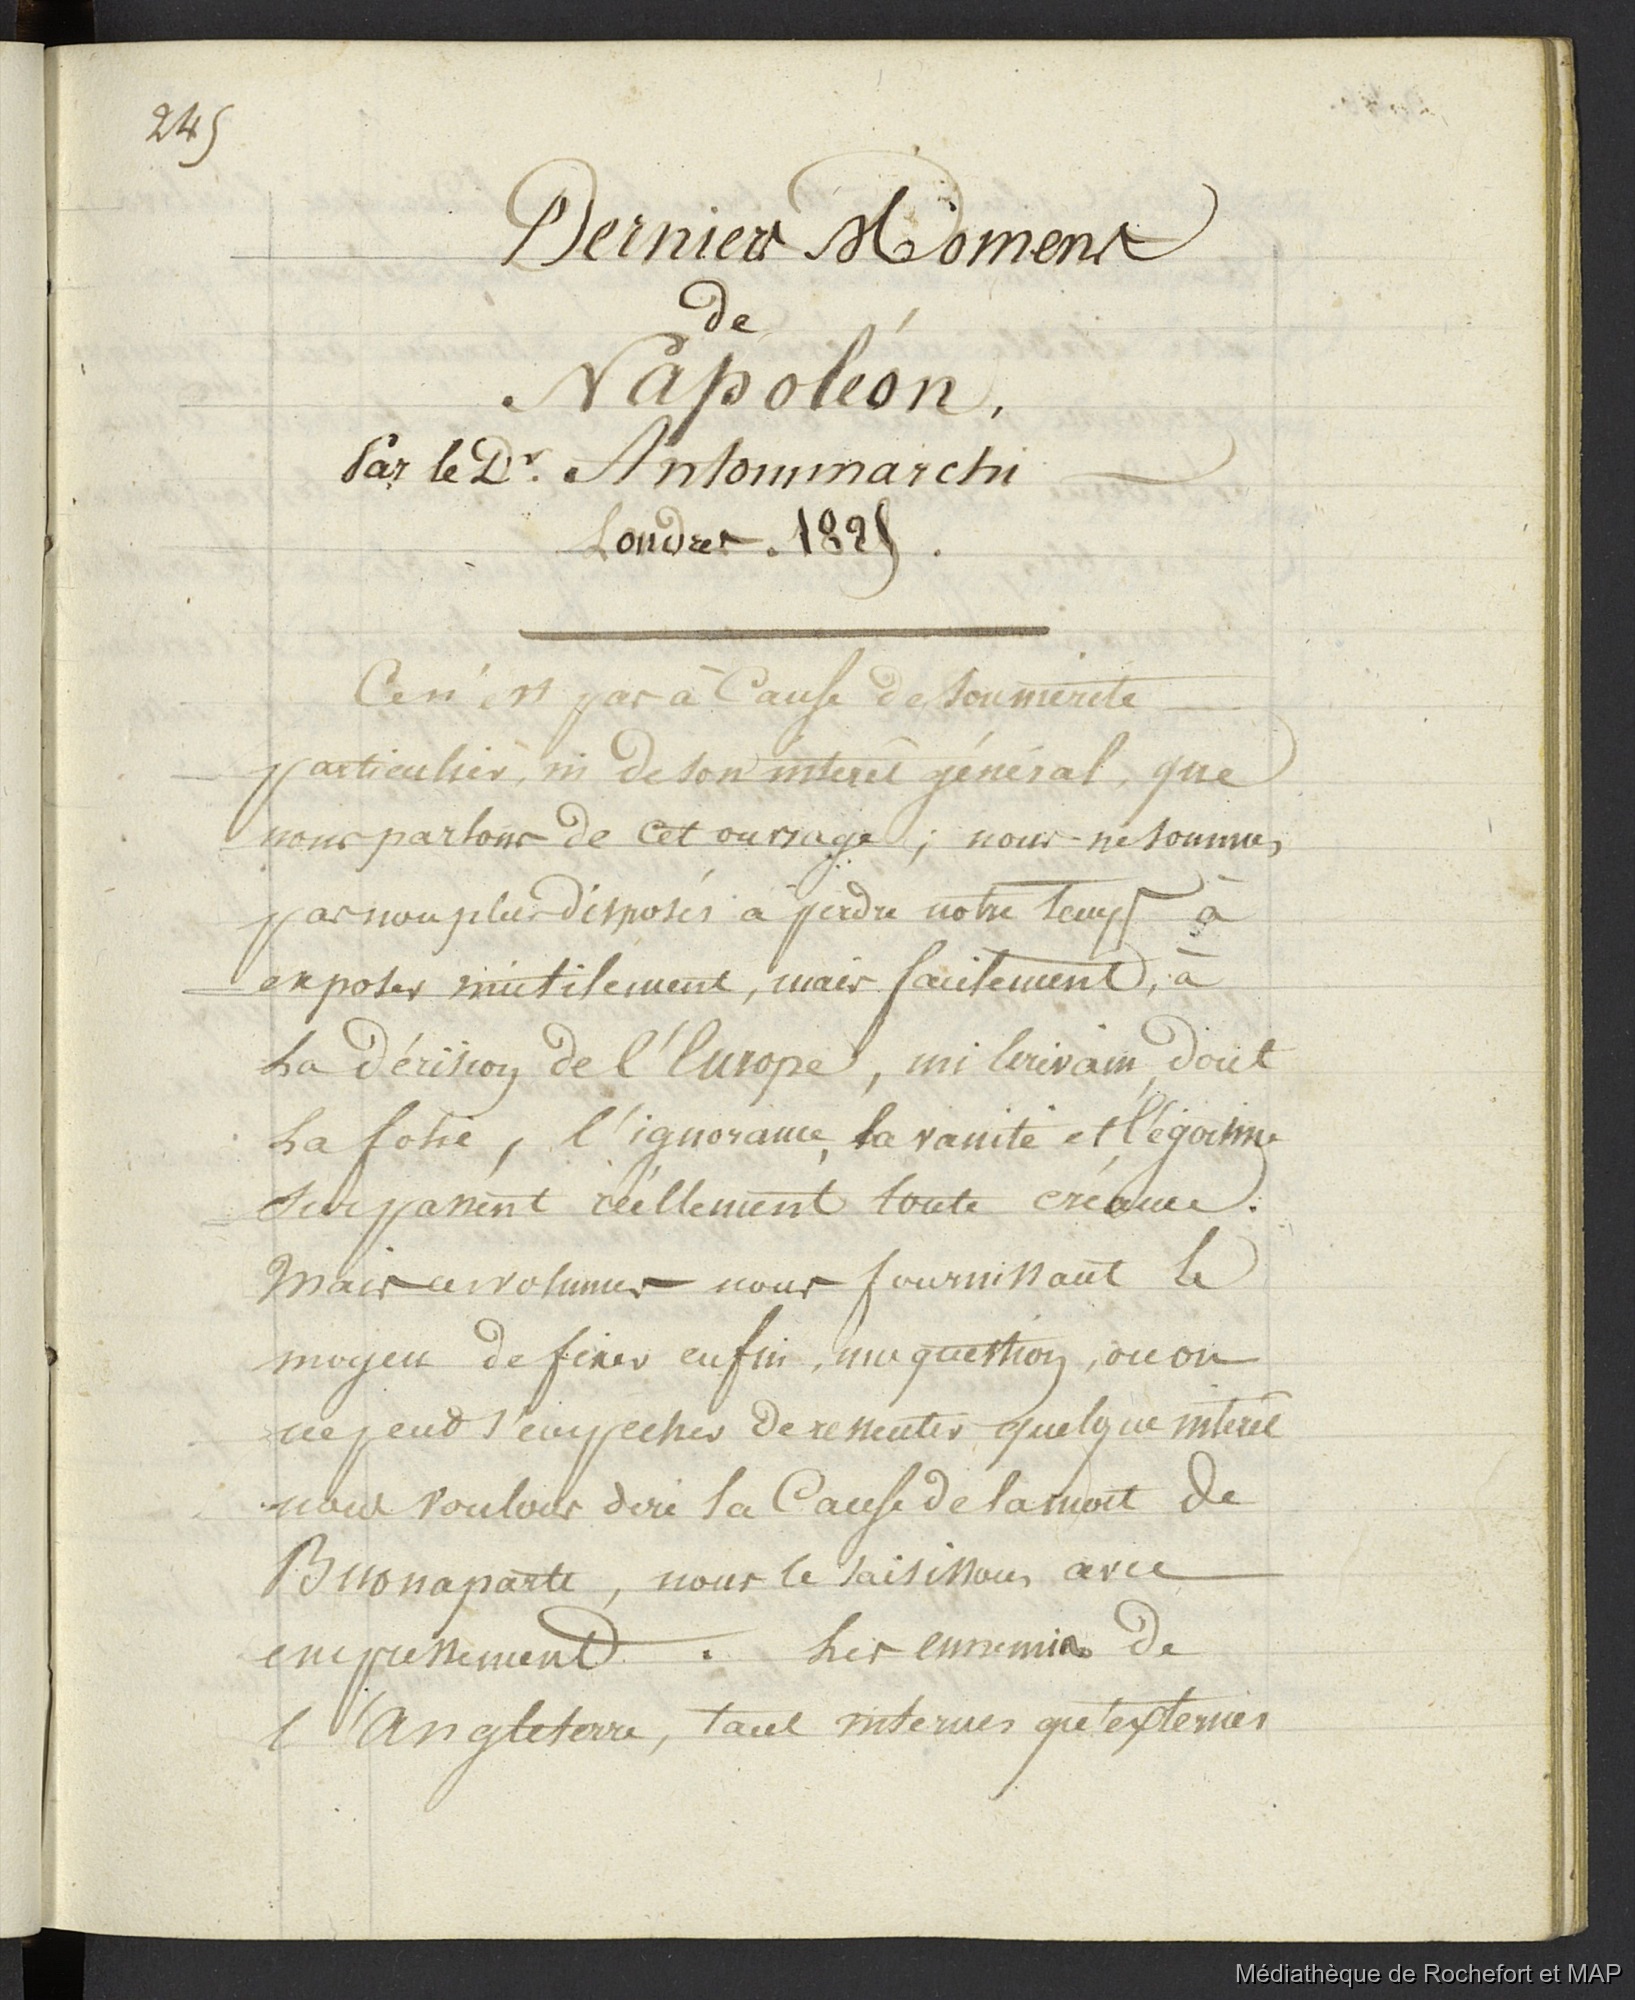 245
Derniers Momens
de
Napoléon,
Par le Dr. Antommarchi
Londres. 1825.
Ce n'est pas à Cause de son mérite
particulier, ni de son intérêt général, que
nous parlons de cet ouvrage; nous ne sommes
pas non plus disposés à perdre notre temps à
exposer inutilement, mais facilement, à
La dérision de l'Europe, un Ecrivain dont
La folie, l'ignorance, la vanité et l'égoisme
surpassent réellement toute créance.
Mais ces volumes nous fournissant le
moyen de fixer enfin, une question, où on
ne peut s'empecher de ressentir quelque intérêt
nous voulons dire la Cause de la mort de
Buonaparte, nous le saisissons avec
empressement. Les ennemis de
l'Angleterre, tant internes qu'externes
Médiathèque de Rochefort et MAP